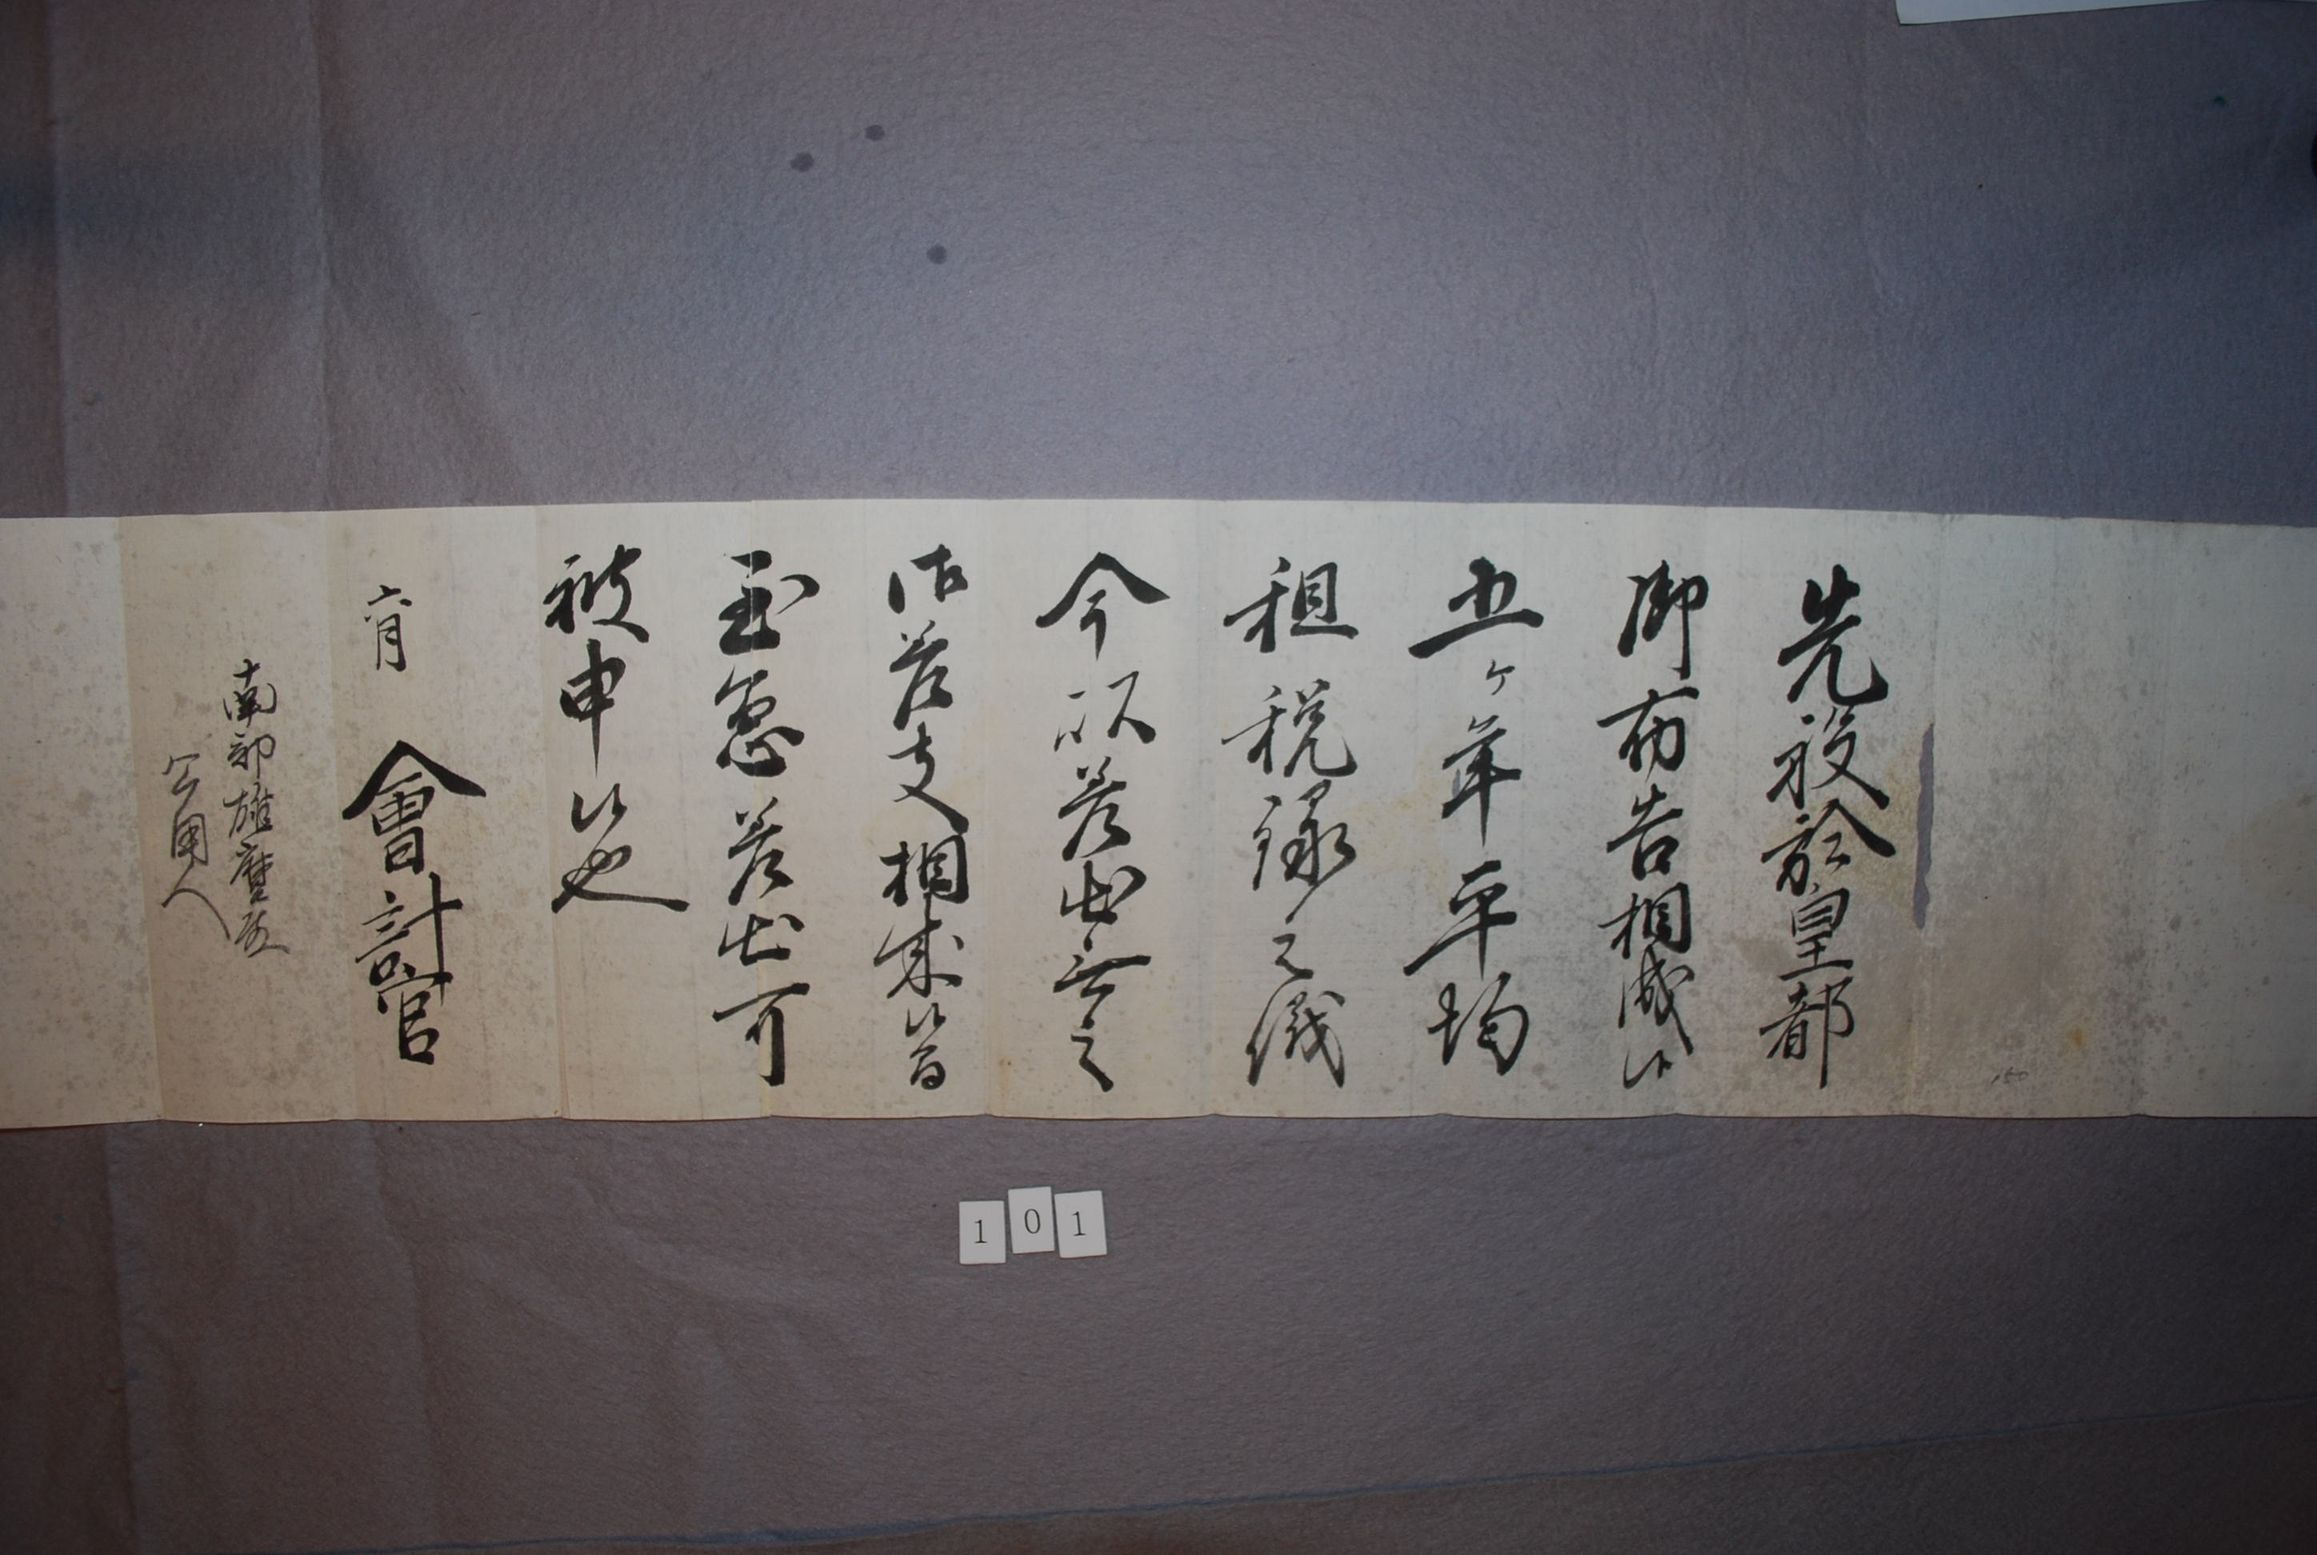 先般於皇都
御布告相成候
五ヶ年平均
租税録之儀
今以差出無之
御差支相成候筈
至急差出可
被申候也
六月 會計官
南部雄麿殿
公用人
101